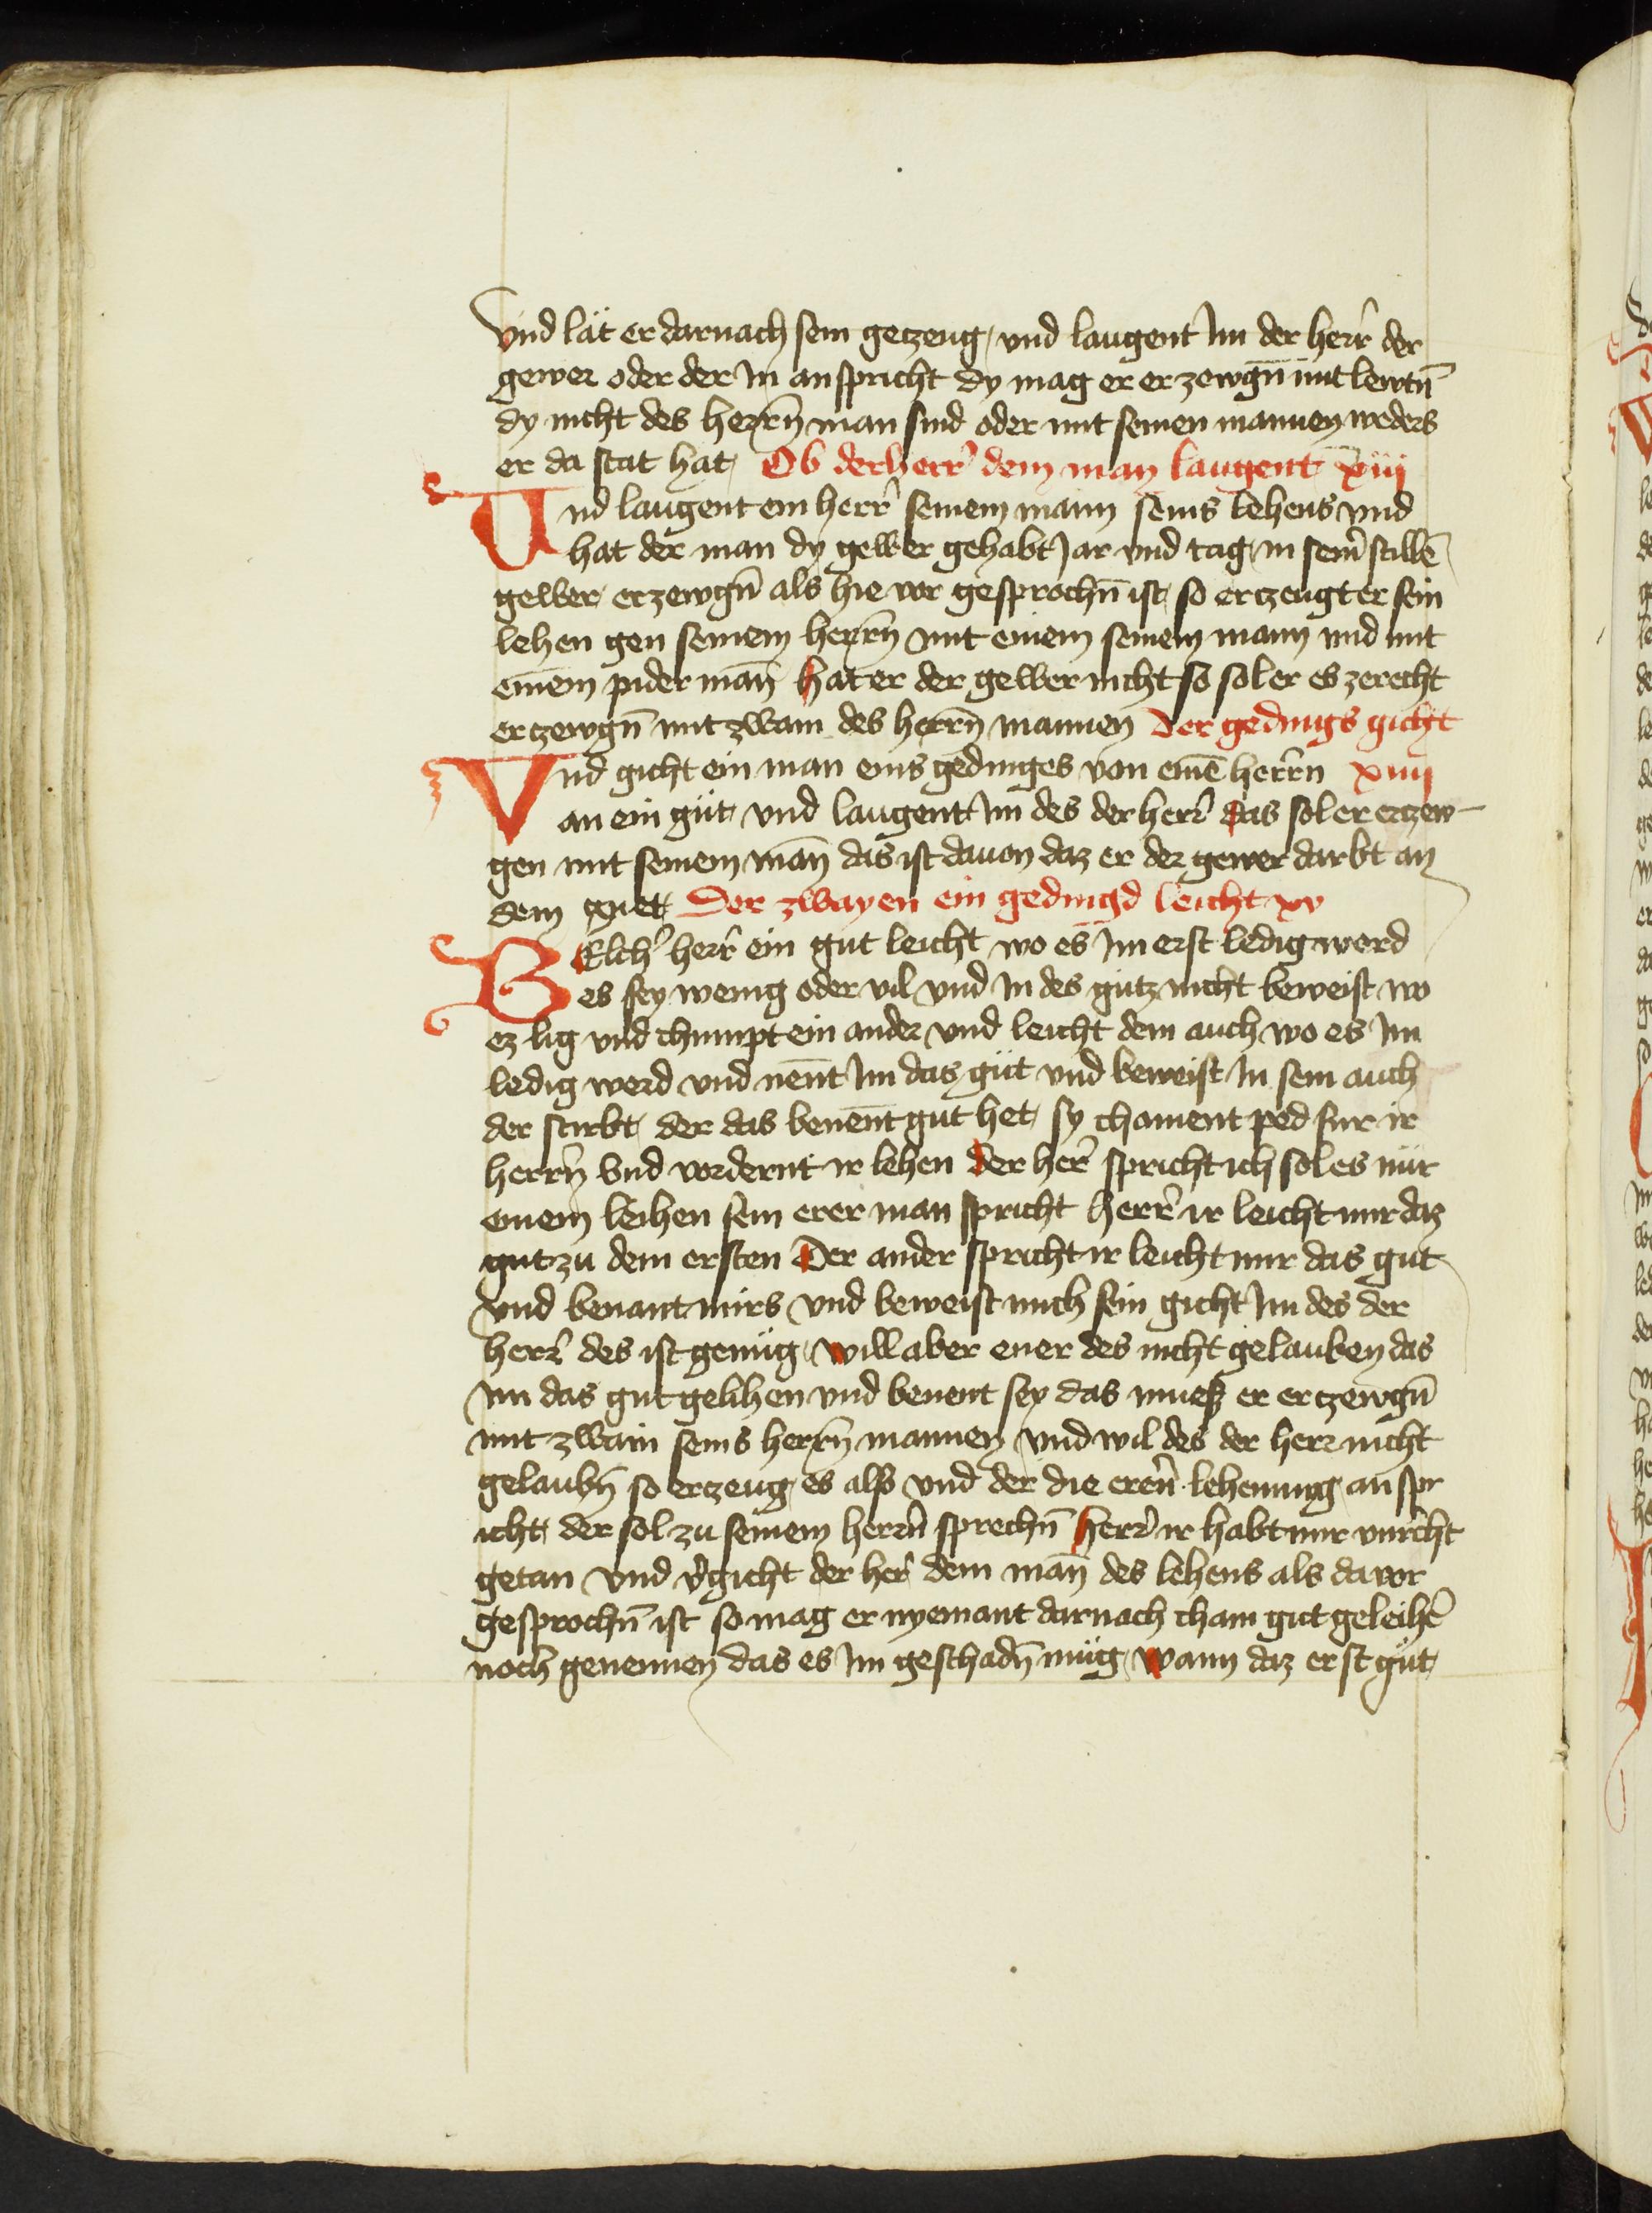 Vnd lät er darnach sein getzeug / vnd laugent Im der herr̄ der
gewer oder der In anspricht dy mag er erzewgn̄ mit lewtn̄
dy nicht des herrn̄ man sind oder mit seinen mannen weders
er da stat hat / Ob der herr̄ dem man laugent xiij
Und laugent ein herr̄ seinem mann seins lehens vnd
hat der man dy gewer gehabt Jar vnd tag / in sein̄ stillē
gewer / erzewgn̄ als hie vor gesprochn̄ ist / so ertzeugt er sein
lehen gen seinem herrn̄ mit einem seinem mann vnd mit
einem pider man̄ hat er der gewer nicht so sol er es zerecht
ertzewgn̄ mit zwain des herrn̄ mannen Der gedings gicht
Vnd gicht ein man eins gedinges von einē herrn xiiij
an ein güt / vnd laugent Im des der herr̄ das sol er ertzew-
gen mit seinem man̄ das ist dauon daz er der gewer darbt an
dem guet / Der zwayen ein gedingd leicht xv
WElch̄ herr̄ ein gut leicht wo es Im erst ledig werd
es sey wenig oder vil vnd In des gutz nicht beweist wo
ez lig vnd chumpt ein ander vnd leicht dem auch wo es Im
ledig werd vnd nen̄t Im das güt vnd beweist In sein auch
der stirbt / der das benen̄t gut het / sy choment ped fur ir
herrn̄ Vnd vordernt ir lehen Der herr̄ spricht ich sol es nür
einem leihen sein erer man spricht herr̄ ir leicht mir daz
gut zu dem ersten Der ander spricht ir leicht mir das gut
vnd benant mirs vnd beweist mich sein gicht Im des der
herr̄ des ist genüg / will aber ener des nicht gelauben das
Im das gut gelihen vnd benent sey das muesz er ertzewgn̄
mit zwain seins herrn̄ mannen / vnd wil des der herr nicht
gelaubn̄ so ertzeug es als vnd der die eren̄ lehenung an spr
icht / der sol zu seinem herrn̄ sprechn̄ herr̄ ir habt mir vnrecht
getan vnd v̄gicht der herr̄ dem man̄ des lehens als da vor
gesprochn̄ ist so mag er nyemant darnach chain gut geleihē
noch genennen das es Im geschadn̄ müg / wann daz erst güt /